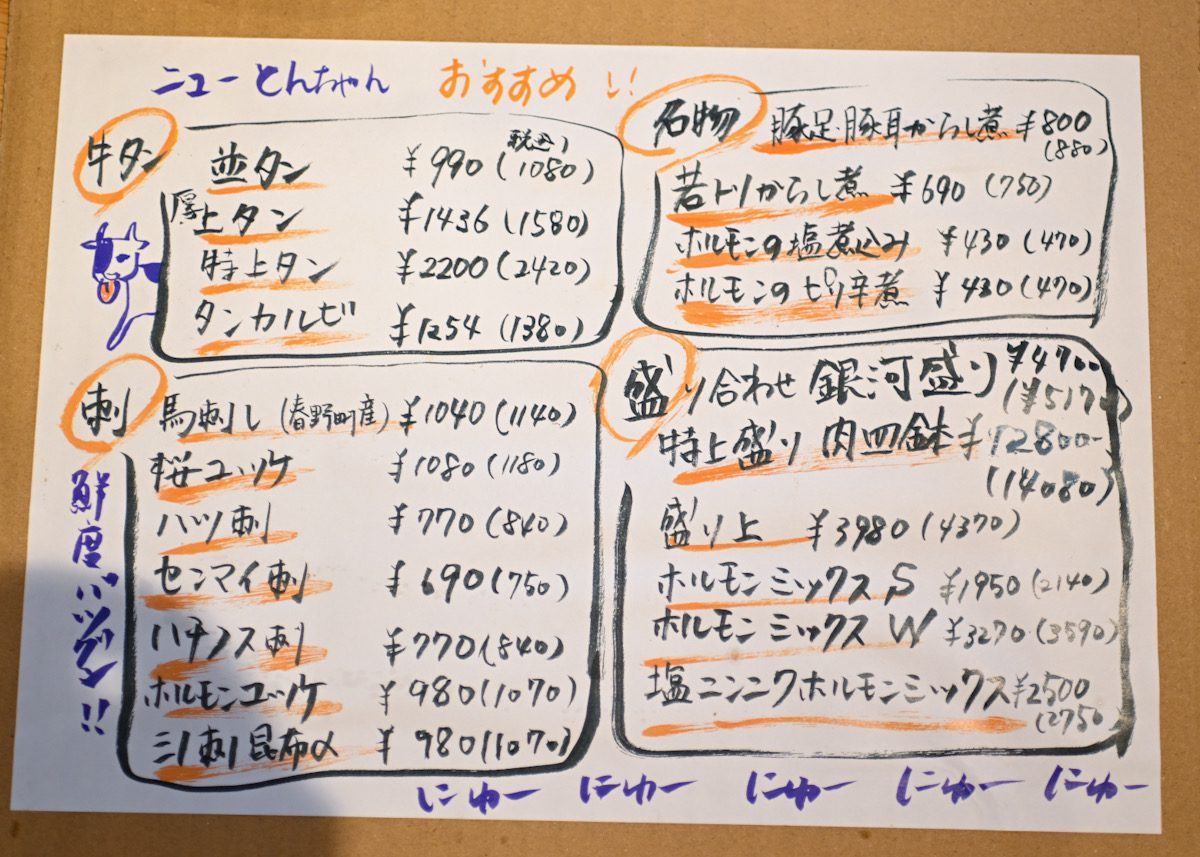 ニューとんちゃん おすすめ!!
牛タン
並タン ¥990(税込)(1080)
厚上タン ¥1436(1580)
特上タン ¥2200(2420)
タンカルビ ¥1254(1380)
刺
馬刺し(春野町産) ¥1040(1140)
桜ユッケ ¥1080(1180)
ハツ刺 ¥770(840)
センマイ刺 ¥690(750)
ハチノス刺 ¥770(840)
ホルモンユッケ ¥980(1070)
ミノ刺昆布〆 ¥980(1070)
鮮度バツグン!!
名物
豚足・豚耳からし煮 ¥800(880)
若トリからし煮 ¥690(750)
ホルモンの塩煮込み ¥430(470)
ホルモンのピリ辛煮 ¥430(470)
盛り合わせ 銀河盛り ¥4700(¥5170)
特上盛り 肉四鉢 ¥12800-(14080)
盛り上 ¥3980(4370)
ホルモンミックス S ¥1950(2140)
ホルモンミックス W ¥3270(3590)
塩ニンニクホルモンミックス ¥2500(2750)
にゅー にゅー にゅー にゅー にゅー